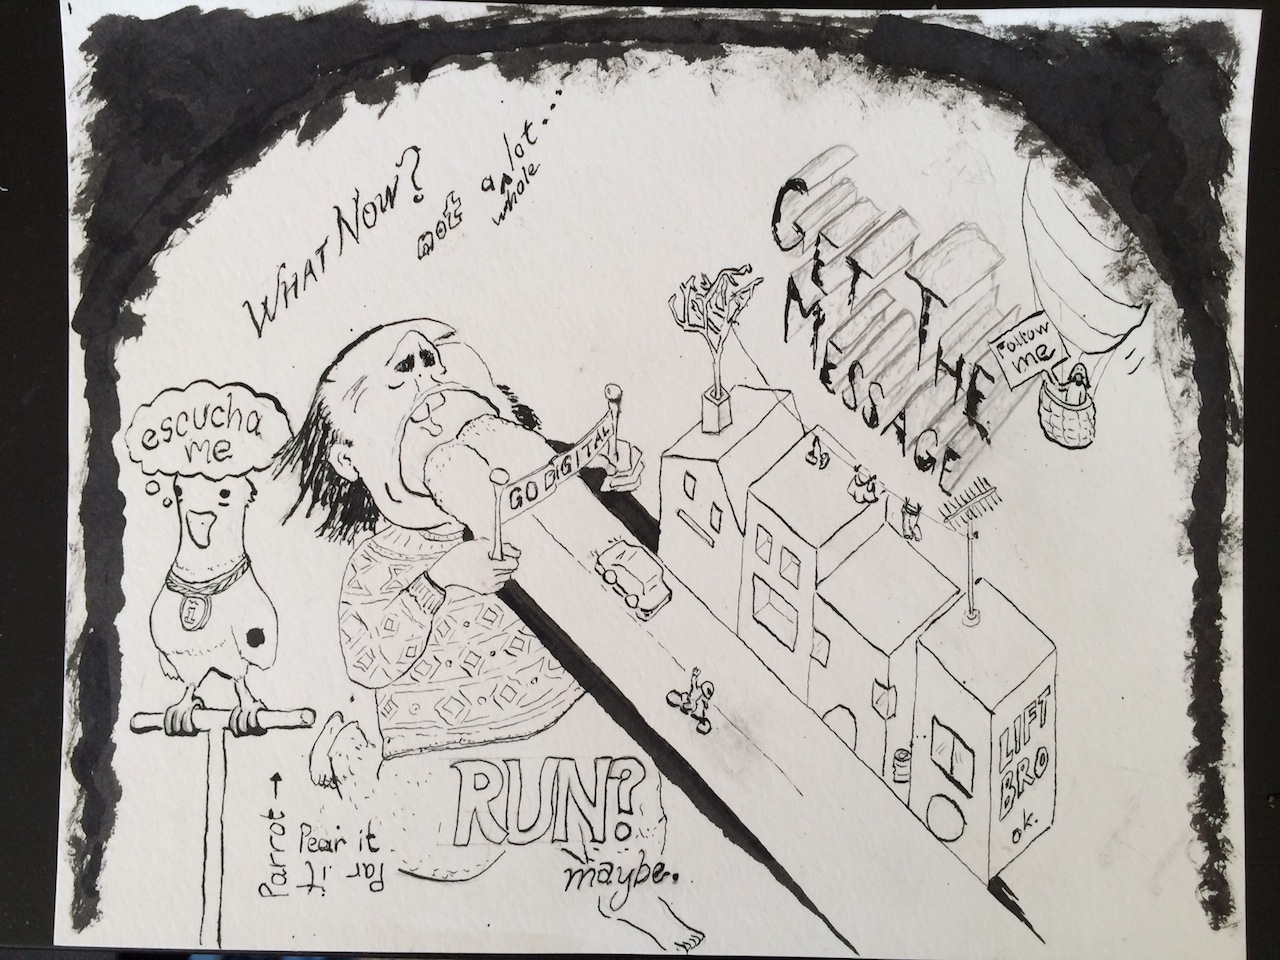 WHAT NOW?
not a lot...
whole
GET THE
MESSAGE
Follow
me
escucha
me
GO DIGITAL
1
LIFT
BRO
ok.
RUN?
maybe.
Parrot →
Pear it
Par it